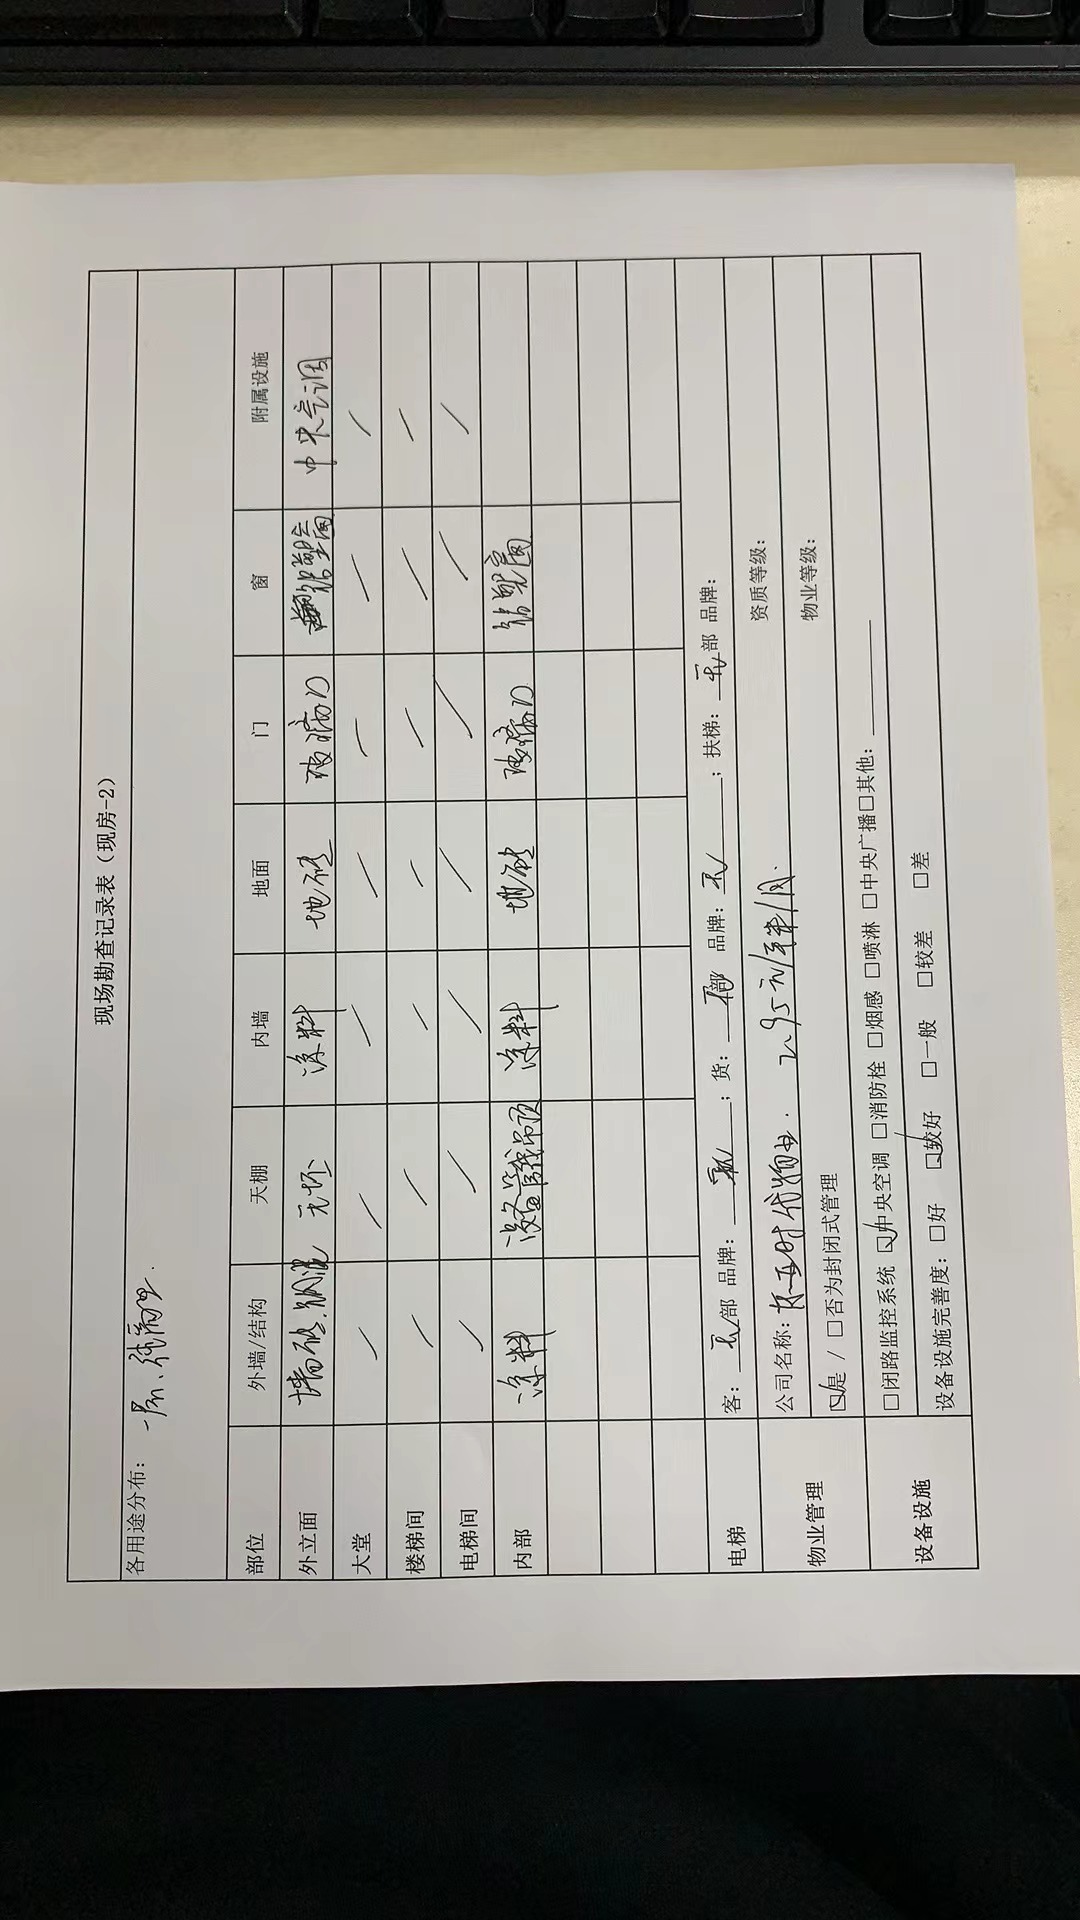 现场勘查记录表（现房-2）
各用途分布： 一层、
部位 外墙/结构 天棚 内墙 地面 门 窗 附属设施
外立面 墙砖、钢混 毛坯 涂料 地砖 玻璃门 铝塑窗 中央空调
大堂 / / / / / / /
楼梯间 / / / / / / /
电梯间 / / / / / / /
内部 涂料 吊顶 涂料 地砖 玻璃门 铝塑窗
电梯 客： 无 部 品牌： 无 ；货： 无 部 品牌： 无 ；扶梯： 无 部 品牌：
物业管理 公司名称： 时代物业. 2.95元/月. 资质等级：
☑是 / □否为封闭式管理 物业等级：
设备设施 □闭路监控系统 ☑中央空调 □消防栓 □烟感 □喷淋 □中央广播□其他：
设备设施完善度： □好 ☑较好 □一般 □较差 □差